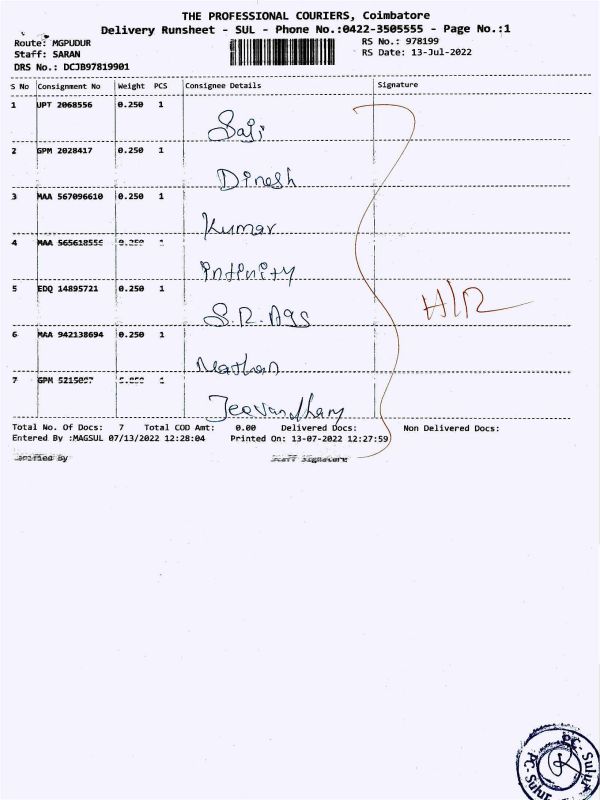 THE PROFESSIONAL COURIERS, Coimbatore
Delivery Runsheet - SUL - Phone No.:0422-3505555 - Page No.:1
Route: MGPUDUR
RS No.: 978199
Staff: SARAN
RS Date: 13-Jul-2022
DRS No.: DCJB97819901
S No Consignment No Weight PCS Consignee Details Signature
1 UPT 2068556 0.250 1 Saji
2 GPM 2028417 0.250 1 Dinesh
3 MAA 567096610 0.250 1 Kumar
4 MAA 565618555 0.250 1 infinity
5 EDQ 14895721 0.250 1 S.R. Ags
H/R
6 MAA 942138694 0.250 1 Mathan
7 GPM 5215097 1 Jeevandham
Total No. Of Docs: 7 Total COD Amt: 0.00 Delivered Docs: Non Delivered Docs:
Entered By :MAGSUL 07/13/2022 12:28:04 Printed On: 13-07-2022 12:27:59
Verified By Staff Signature
PC-Sulur